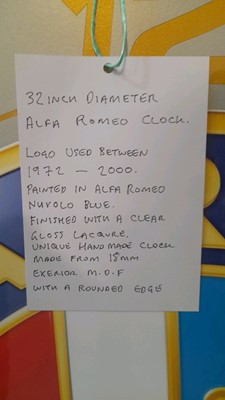 32 INCH DIAMETER
ALFA ROMEO CLOCK.
LOGO USED BETWEEN
1972 — 2000.
PAINTED IN ALFA ROMEO
NUVOLO BLUE.
FINISHED WITH A CLEAR
GLOSS LACQURE.
UNIQUE HANDMADE CLOCK
MADE FROM 18MM
EXERIOR M.D.F
WITH A ROUNDED EDGE